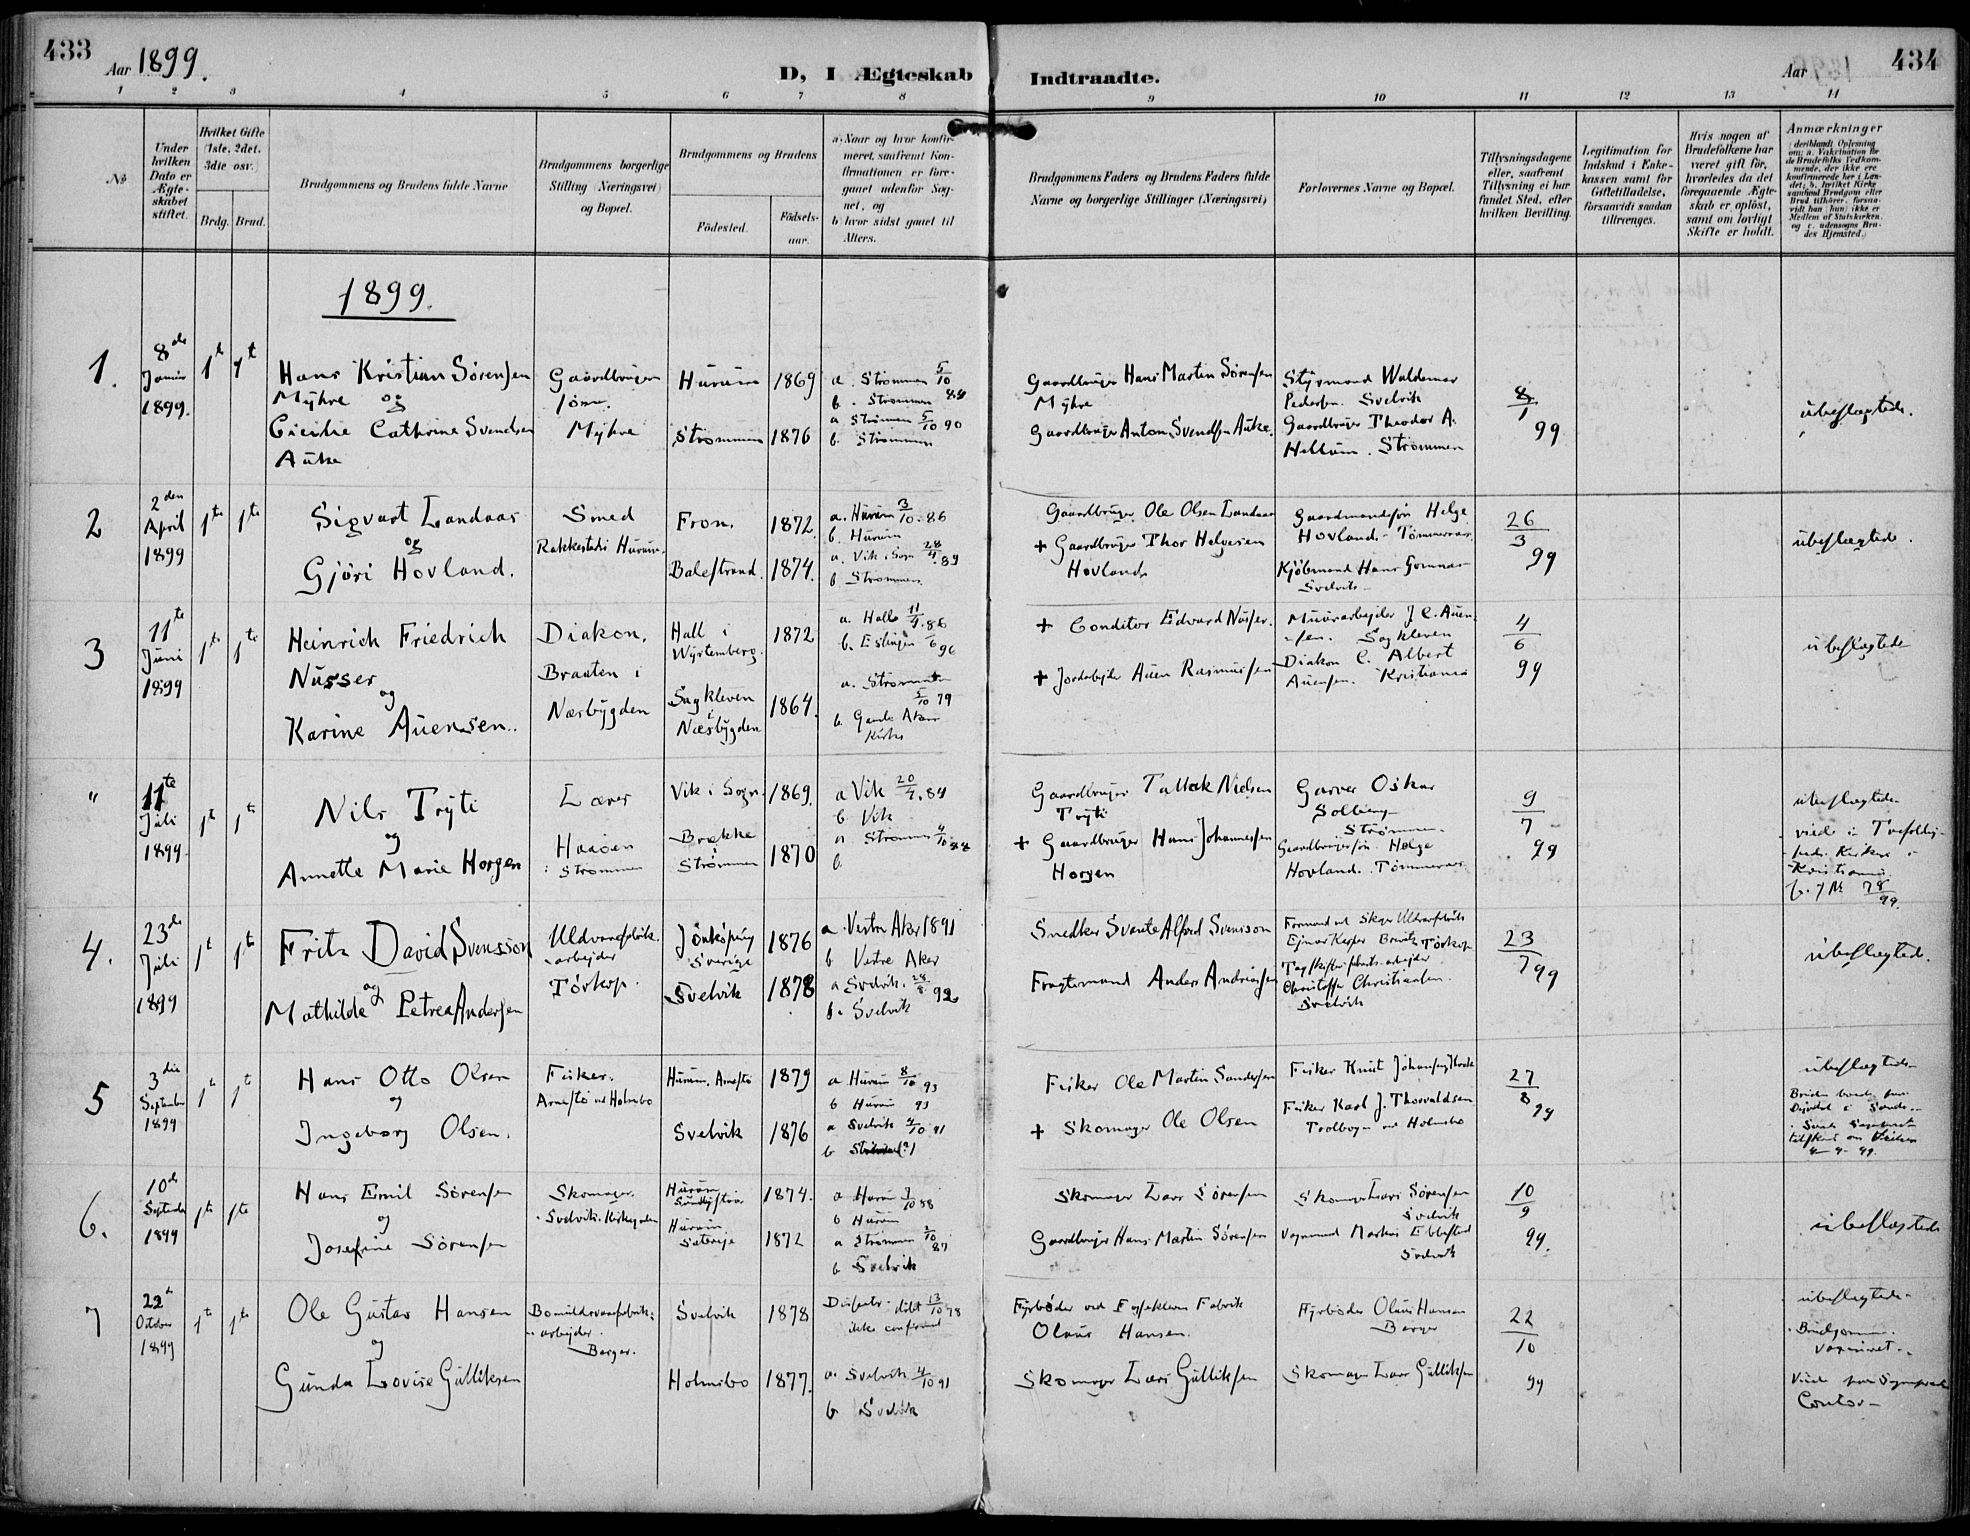 433
Aar 1899.
D, I Ægteskab Indtraadte.
Aar
434
1 2 3 4 5 6 7 8 9 10 11 12 13 14
No
Under hvilken Dato er Ægteskabet stiftet.
Hvilket Gifte (1ste, 2det, 3die osv.)
Brdg. Brud.
Brudgommens og Brudens fulde Navne
Brudgommens borgerlige Stilling (Næringsvei) og Bopæl.
Brudgommens og Brudens
Födested. Födsels-aar.
a) Naar og hvor konfirmeret, saafremt Konfirmationen er foregaaet udenfor Sognet, og
b) hvor sidst gaaet til Alters.
Brudgommens Faders og Brudens Faders fulde Navne og borgerlige Stillinger (Næringsvei)
Forlovernes Navne og Bopæl.
Tillysningsdagene eller, saafremt Tillysning ei har fundet Sted, efter hvilken Bevilling.
Legitimation for Indskud i Enkekassen samt for Giftetilladelse, forsaavidt saadan tiltrænges.
Hvis nogen af Brudefolkene har været gift för, hvorledes da det foregaaende Ægteskab er oplöst, samt om lovligt Skifte er holdt.
Anmærkninger (deriblandt Oplysning om: a. Vakcination for de Brudefolks Vedkommende, der ikke ere konfirmerede her i Landet; b. hvilket Kirkesamfund Brudgom eller Brud tilhörer, forsaavidt han (hun) ikke er Medlem af Statskirken, og c. udensogns Brudes Hjemsted.)
1899.
1. 8de Januar 1899. 1te 1te
Hans Kristian Sörensen Myhre og
Cicilie Cathrine Svendsen Auke
Gaardbruger sön. Myhre
Hurum 1869
Strömmen 1876
a. Strömmen 5/10 84
b. Strömmen
a Strömmen 5/10 90
b. Strömmen
Gaardbruger Hans Martin Sörensen Myhre
Gaardbruger Anton Svendsen Auke.
Styrmand Waldemar Pedersen. Svelvik
Gaardbruger Theodor A. Hellum. Strömmen
8/1 99
ubeslægtede.
2 2den April 1899 1te 1te
Sigvart Landaas
og
Gjöri Hovland.
Smed
Rakkestad i Hurum.
Fron. 1872.
Balestrand. 1874.
a. Hurum 3/10. 86
b. Hurum
a. Vik i Sogn 28/4. 89
b. Strömmen
Gaardbruger Ole Olsen Landaas
+ Gaardbruger Thor Helgesen Hovland
Gaardmandssön Helge Hovland - Tömmeraas.
Kjöbmand Hans
Svelvik
26/3 99
ubeslægtede.
3 11te Juni 1899 1te 1te
Heinrich Friedrich Nusser
og
Karine Auensen.
Diakon.
Braaten i Næsbygden
Hall i Würtemberg. 1872
Sagkleven i Næsbygden 1864.
a. Halle 11/4. 86
b. Eslingen /6 96
a. Strömmen 5/10 79
b. Gamle Aker Kirke
+ Conditor Edward Nusser.
+ Jordarbejder Auen Rasmussen
Murarbejder J. C. Auensen. Sagkleven
Diakon C. Albert Auensen. Kristiania
4/6 99
ubeslægtede
" 11te Juli 1899. 1te 1te
Nils Tryti
og
Annette Marie Horgen
Lærer
Haasen
i Strömmen
Vik i Sogn. 1869.
Brekke Strömmen 1870
a Vik 20/4. 84
b Vik
a Strömmen 4/10 84
b
Gaardbruger Tallak Nielsen Tryti
+ Gaardbruger Hans Johannessen Horgen
Garver Oskar Solberg Strömmen.
Gaardbrugersön Helge Hovland. Tömmeraas
9/7 99
ubeslægtede
viede i Trefoldighedskirken i Kristiania
4. 23de Juli 1899 1te 1te
Fritz David Svensson
og
Mathilde Petrea Andersen
Uldvarefabrik-arbejder
Törkop.
Jönköping Sverige 1876
Svelvik 1878
a Vestre Aker 1891
b Vestre Aker
a Svelvik. 28/8 92
b. Svelvik
Snedker Svante Alfred Svensson
Fragtemand Anders Andreassen
Formand ved Uldvarefabrik
Christoffer Christiansen Svelvik
23/7 99
ubeslægtede.
5 3die September 1899 1te 1te
Hans Otto Olsen
og
Ingeborg Olsen.
Fisker.
Arnestö ved Holmsbo
Hurum. Arnestö 1879
Svelvik 1876
a Hurum 8/10 93
b Hurum 93
a Svelvik 4/10 91
b
Fisker Ole Martin Sandersen
+ Skomager Ole Olsen
Fisker Knut
Fisker Karl J. Thorvaldsen Trolbogen ved Holmsbo
27/8 99
ubeslægtede
6. 10de September 1899 1te 1te
Hans Emil Sörensen
og
Josefine Sörensen
Skomager.
Svelvik. Kirkegaden
Hurum 1874.
Hurum Sætreje 1872
a Hurum /10 88
b Hurum
a Strömmen /10 87
b Svelvik
Skomager Lars Sörensen
Gaardbruger Hans Martin Sörensen
Skomager Lars Sörensen Svelvik
Vognmand Martin Ebbestad Svelvik
10/9 99.
ubeslægtede
7 22de October 1899 1te 1te
Ole Gustav Hansen
og
Gunda Lovise Gulliksen
Bomuldsvarefabrik-arbejder. Berger.
Svelvik 1878
Holmsbo 1877.
Dissenter döbt 13/10 78
ikke confirmeret
a. Svelvik 4/10 91
b Svelvik
Fyrböder ved Fossekleven Fabrik Olaus Hansen.
Skomager Lars Gulliksen
Fyrböder Olaus Hansen Berger
Skomager Lars Gulliksen
22/10 99
ubeslægtede
Brudgommen vaxineret.
Viede paa Sognepræstens Contor